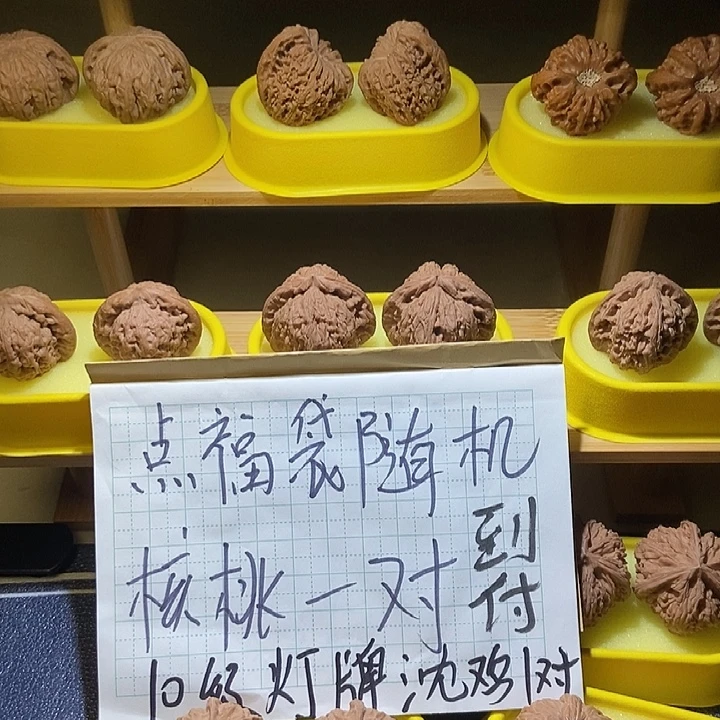 点福袋随机
核桃一对到付
10级灯牌沈鸡1对